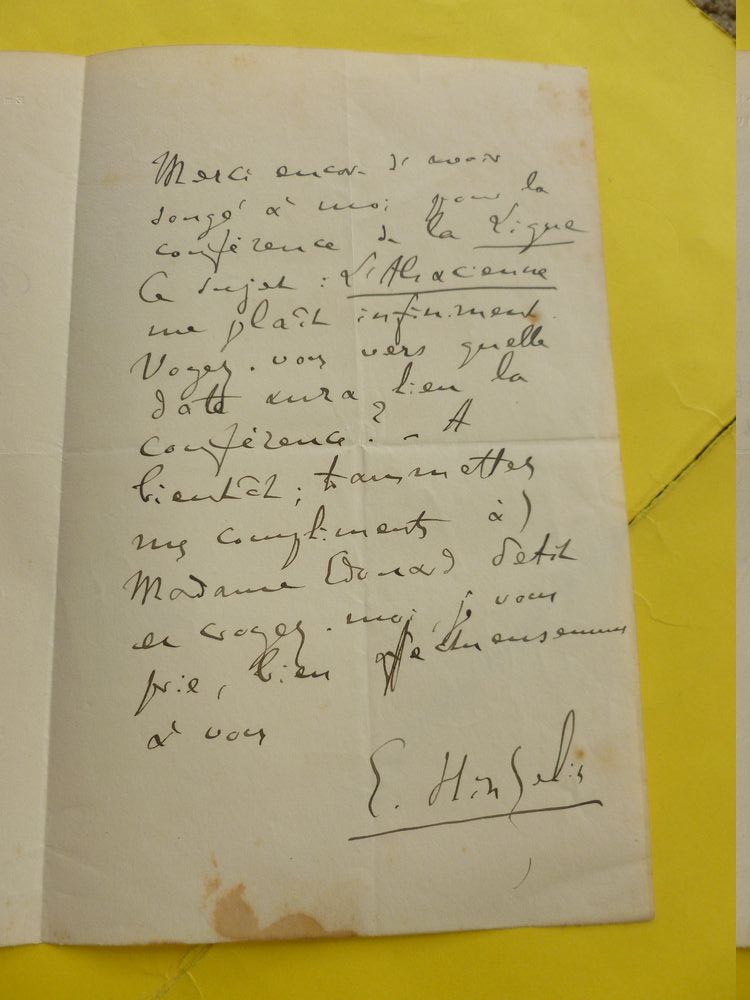 Merci encore d'avoir
songé à moi pour la
conférence de la Ligue
Ce sujet : L'Alsacienne
me plaît infiniment.
Voyez-vous vers quelle
date aura lieu la
conférence ? – A
bientôt ; transmettez
mes compliments à
Madame Edouard Petit
et croyez-moi, je vous
prie, bien affectueusement
à vous
E. Hinzelin